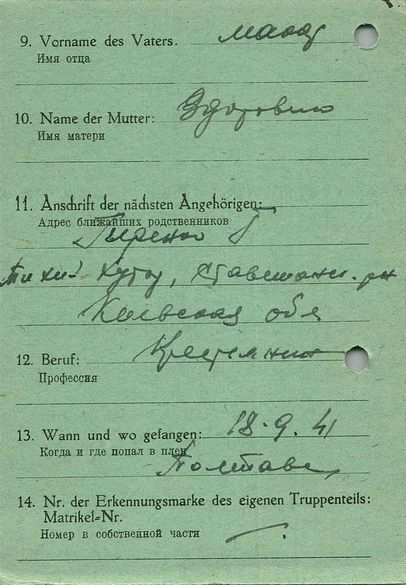 9. Vorname des Vaters.
Имя отца
10. Name der Mutter:
Имя матери
11. Anschrift der nächsten Angehörigen:
Адрес ближайших родственников
Тихий Хутор,
Киевская обл
12. Beruf: Крестьянин
Профессия
13. Wann und wo gefangen: 18.9.41
Когда и где попал в плен
Полтава
14. Nr. der Erkennungsmarke des eigenen Truppenteils:
Matrikel-Nr.
Номер в собственной части